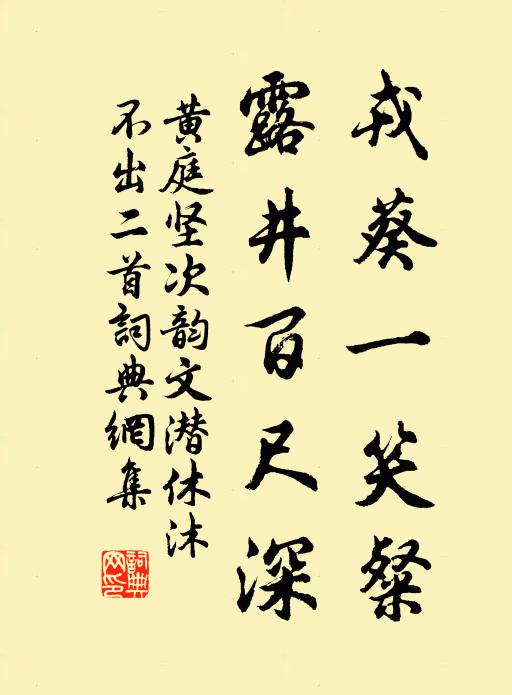 戎葵一笑粲
露井百尺深
黄庭坚次韵文潜休沐
不出二首詞典網集
詞典网印